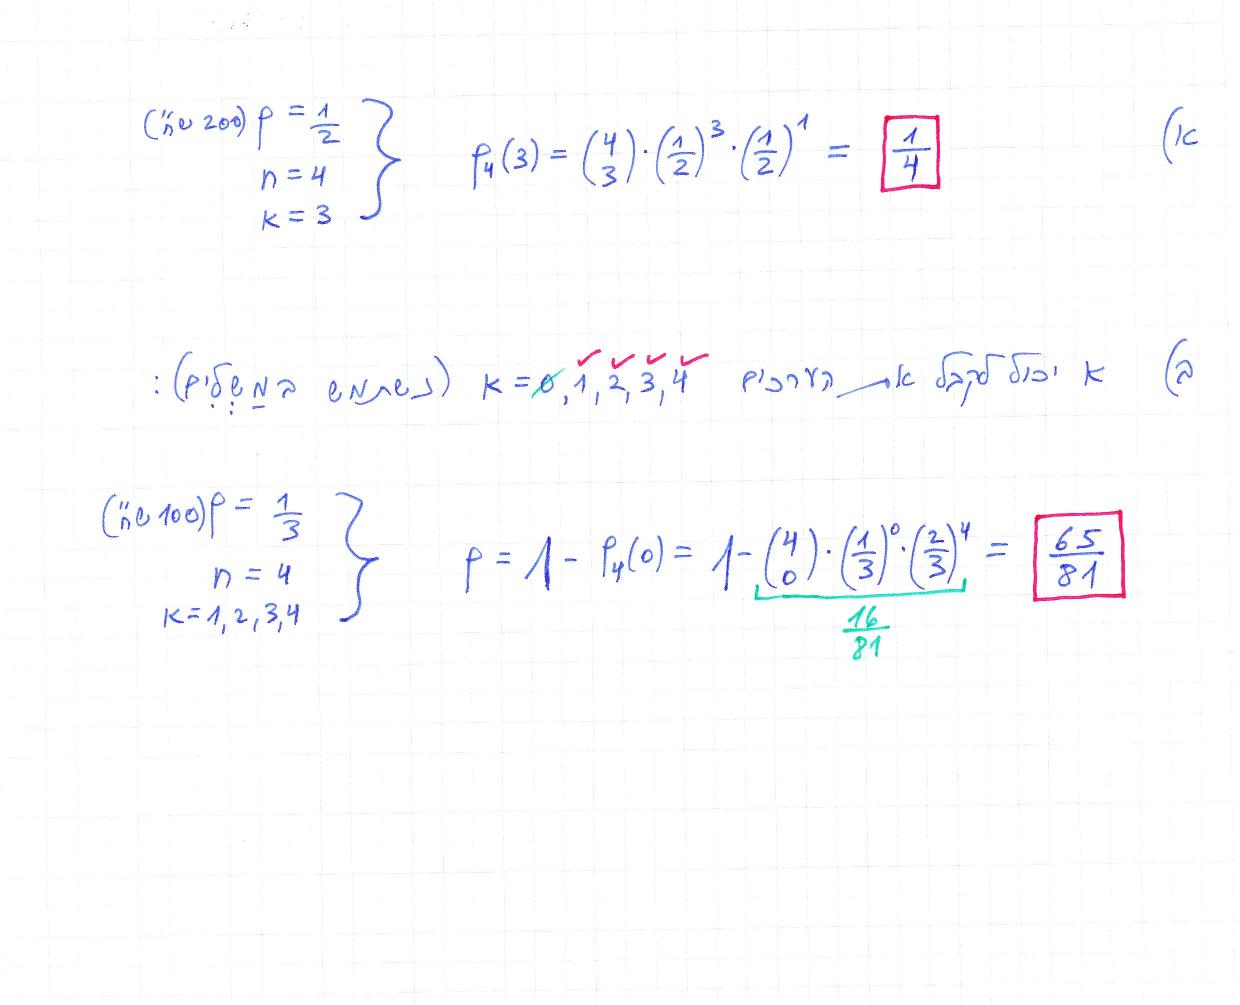 א) p = 1/2 (200 ש"ח)
n = 4
k = 3
P₄(3) = (4 3) · (1/2)³ · (1/2)¹ = 1/4
ב) k יכול לקבל את הערכים k = 0, 1, 2, 3, 4 (נשתמש במשלים):
p = 1/3 (100 ש"ח)
n = 4
k = 1, 2, 3, 4
P = 1 - P₄(0) = 1 - (4 0) · (1/3)⁰ · (2/3)⁴ = 65/81
16/81